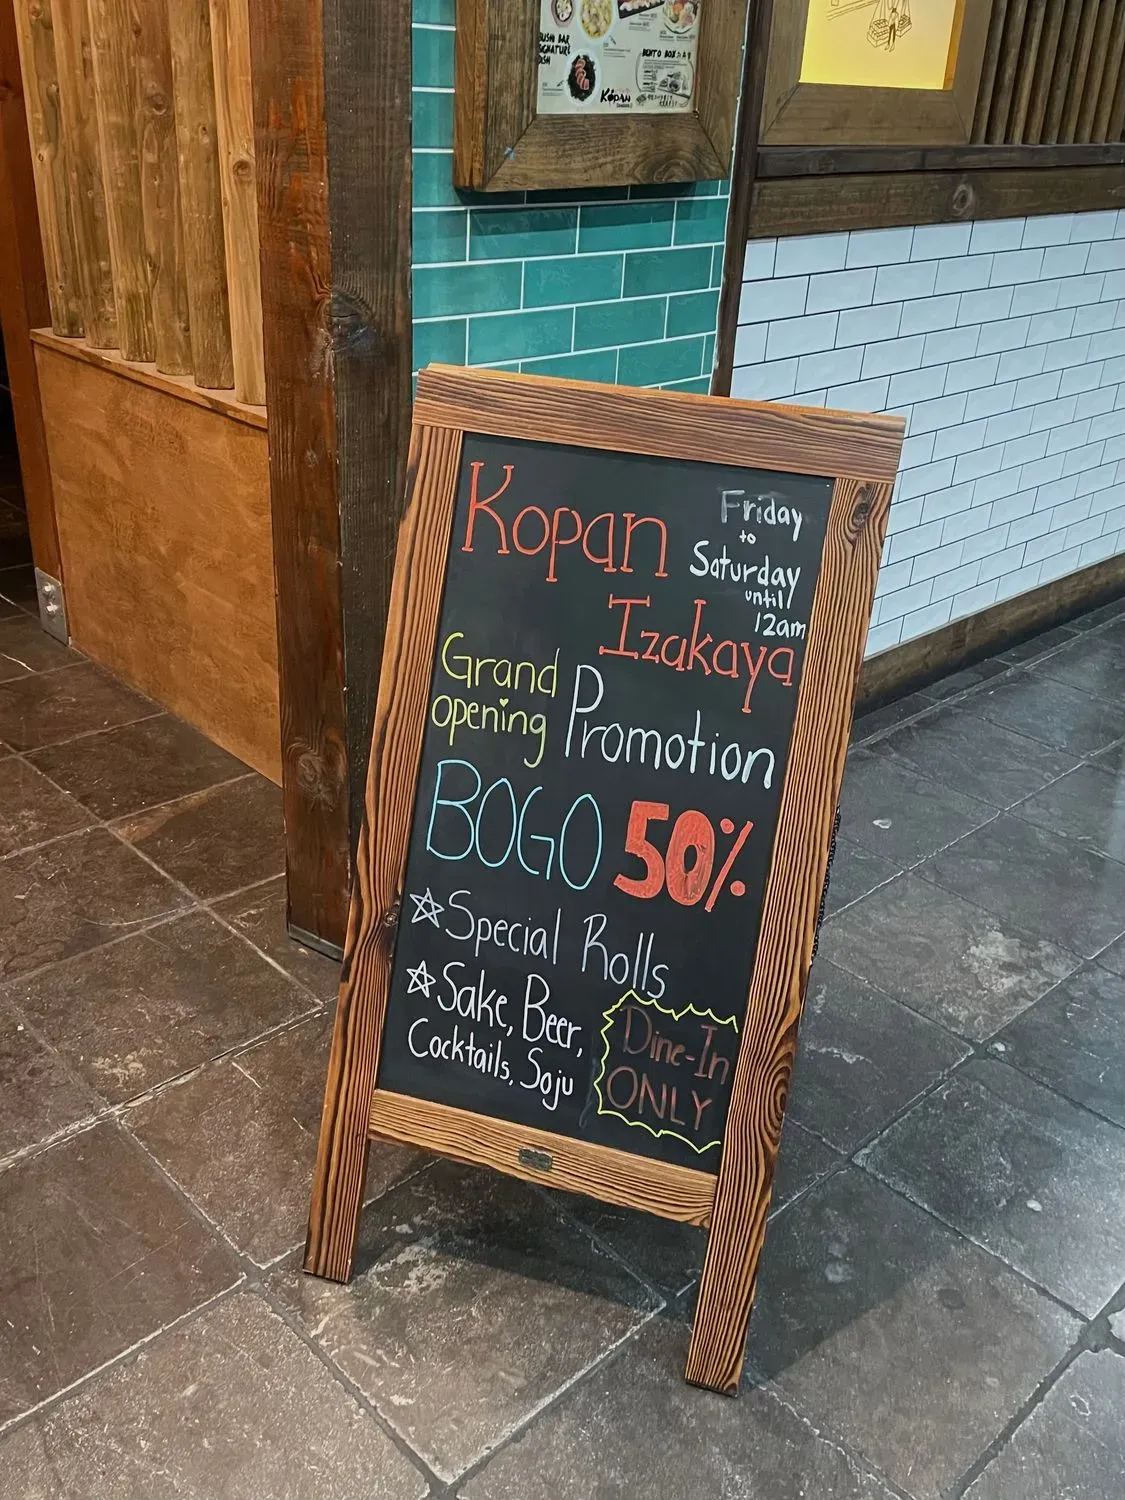 SUSHI BAR
SIGNATURE
DISH
BENTO BOX
KOPAN
Kopan
Friday
to
Saturday
until
12am
Izakaya
Grand
opening
Promotion
BOGO 50%
☆Special Rolls
☆Sake, Beer,
Cocktails, Soju
Dine-In
ONLY